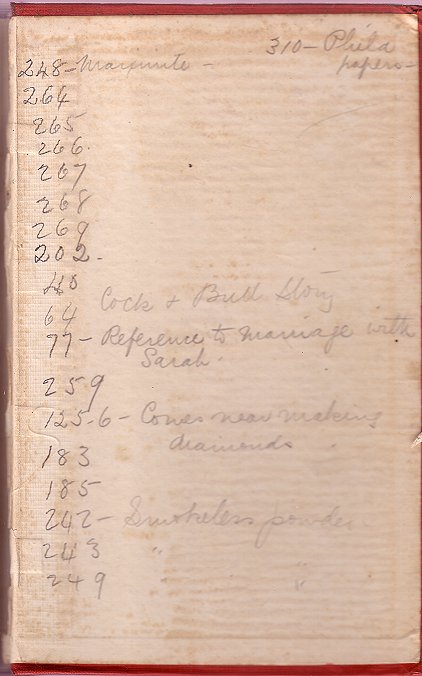 310 - Phila
papers -
248 - Maximite -
264
265
266.
267
268
269
202.
40
Cock & Bull Story
64
77 - Reference to marriage with
Sarah.
259
125-6 - Comes near making
diamonds
183
185
242 - Smokeless powder
243 " "
249 " "